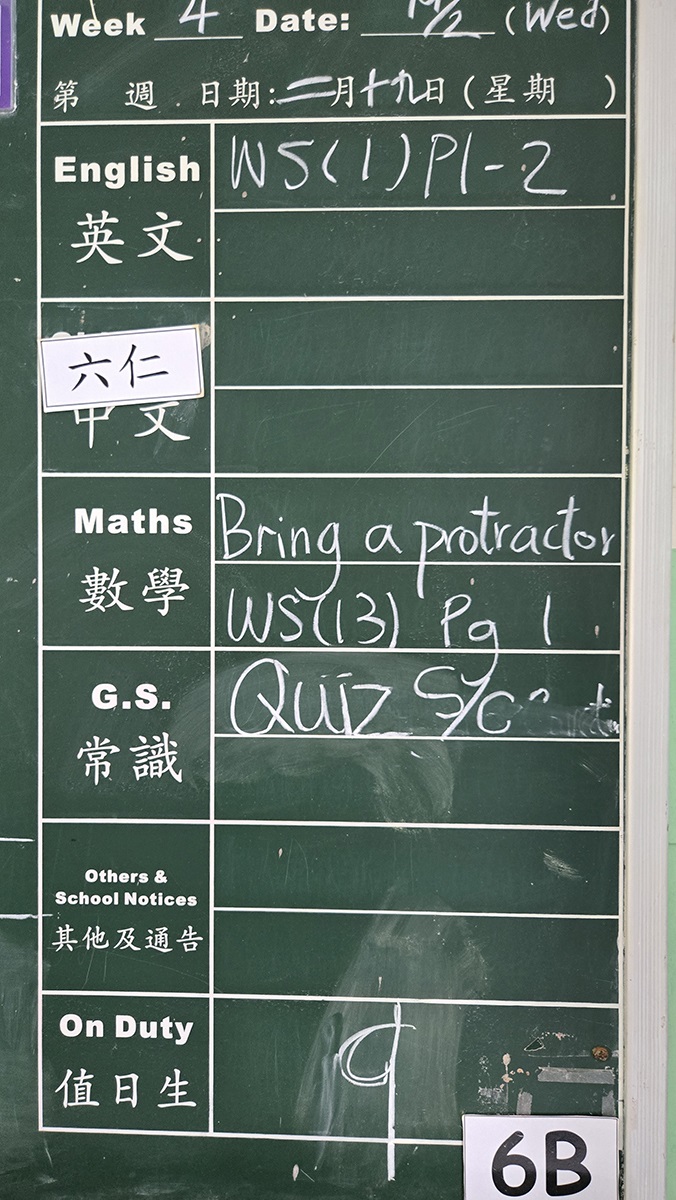 Week 4 Date: 19/2 (Wed)
第 週 日期:二月十九日(星期 )
English WS(1) P1-2
英文
六仁
中文
Maths Bring a protractor
數學 WS(13) Pg 1
G.S. Quiz S/C
常識
Others &
School Notices
其他及通告
On Duty 9
值日生
6B